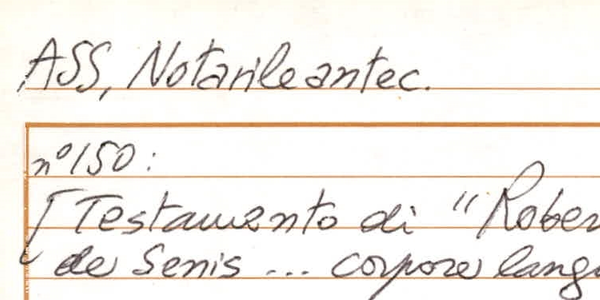 ASS, Notarile antec.
n° 150:
[Testamento di "Rober
de Senis ... corpore langu